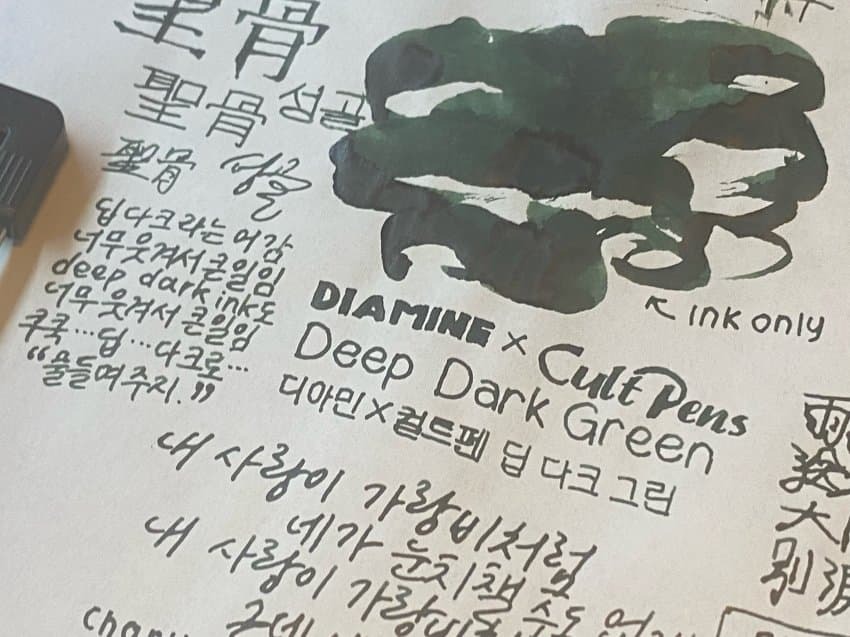 聖骨
聖骨 성골
聖骨 성골
딥 다크라는 어감
너무 웃겨서 큰일임
deep dark ink도
너무 웃겨서 큰일임
쿠쿡…딥…다크로…
“물들여주지.”
ink only
DIAMINE × Cult Pens
Deep Dark Green
디아민×컬트펜 딥 다크 그린
내 사랑이 가랑비처럼
네가 눈치챌
내 사랑이 가랑비처럼
雨
大
別